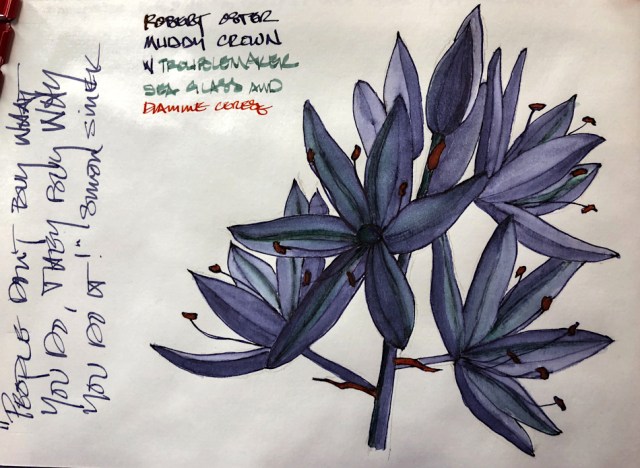 ROBERT OSTER
MUDDY CROWN
W TROUBLEMAKER
SEA GLASS AND
DIAMINE CERISE
"PEOPLE DON'T BUY WHAT
YOU DO, THEY BUY WHY
YOU DO IT!" SIMON SINEK